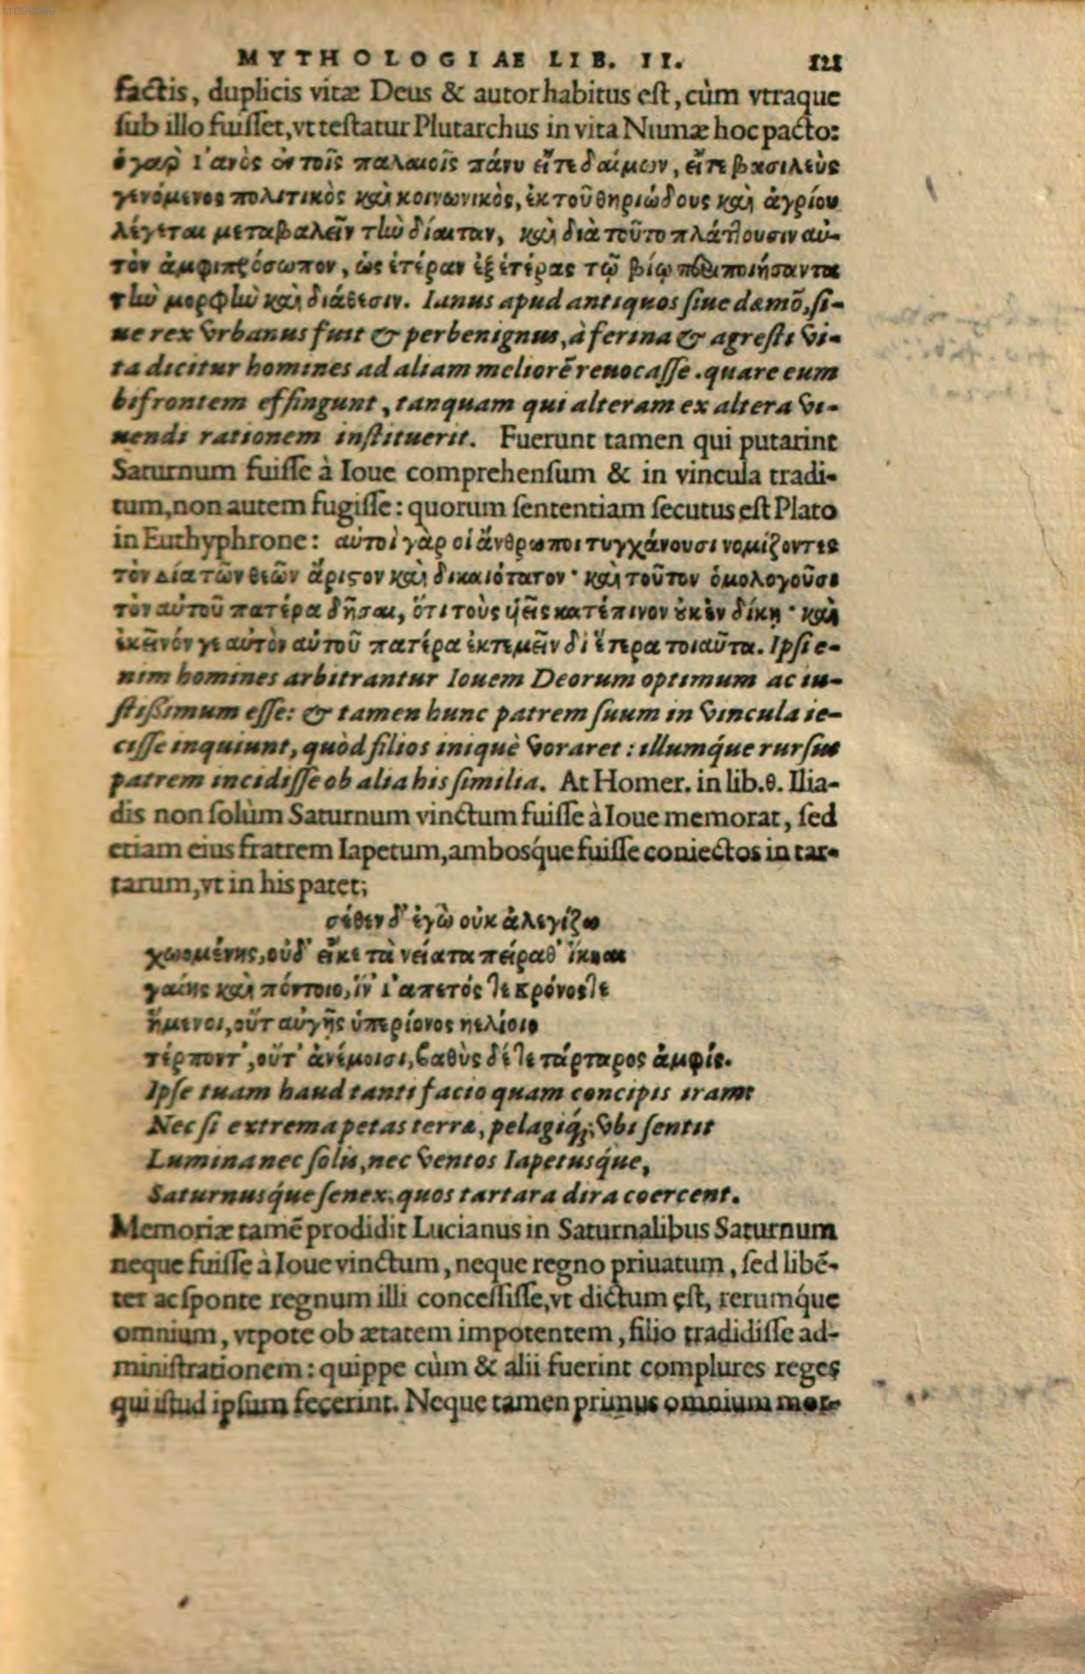 MYTHOLOGIAE LIB. II. 121
factis, duplicis vitæ Deus & autor habitus est, cùm vtraque
sub illo fuisset, vt testatur Plutarchus in vita Numæ hoc pacto:
ὁ γαρ ἰανὸς ἐν τοῖς παλαιοῖς πάνυ εἴτε δαίμων, εἴτε βασιλεὺς
γενόμενος πολιτικὸς καὶ κοινωνικὸς, ἐκ τοῦ θηριώδους καὶ ἀγρίου
λέγεται μεταβαλεῖν τὴν δίαιταν, καὶ διὰ τοῦτο πλάττουσιν αὐ-
τὸν ἀμφιπρόσωπον, ὡς ἑτέραν ἐξ ἑτέρας τῷ βίῳ περιποιήσαντα
τὴν μορφὴν καὶ διάθεσιν. Ianus apud antiquos siue dæmõ, si-
ue rex vrbanus fuit & perbenignus, à ferina & agresti vi-
ta dicitur homines ad aliam meliorẽ reuocasse. quare eum
bifrontem effingunt, tanquam qui alteram ex altera vi-
uendi rationem instituerit. Fuerunt tamen qui putarint
Saturnum fuisse à Ioue comprehensum & in vincula tradi-
tum, non autem fugisse: quorum sententiam secutus est Plato
in Euthyphrone: αὐτοὶ γὰρ οἱ ἄνθρωποι τυγχάνουσι νομίζοντες
τὸν Δία τῶν θεῶν ἄριστον καὶ δικαιότατον· καὶ τοῦτον ὁμολογοῦσι
τὸν αὑτοῦ πατέρα δῆσαι, ὅτι τοὺς υἱεῖς κατέπινον οὐκ ἐν δίκῃ· καὶ
ἐκεῖνόν γε αὐτὸν αὑτοῦ πατέρα ἐκτεμεῖν δι᾽ ἕτερα τοιαῦτα. Ipsi e-
nim homines arbitrantur Iouem Deorum optimum ac iu-
stissimum esse: & tamen hunc patrem suum in vincula ie-
cisse inquiunt, quòd filios iniquè voraret: illumq́ue rursus
patrem incidisse ob alia his similia. At Homer. in lib. θ. Ilia-
dis non solùm Saturnum vinctum fuisse à Ioue memorat, sed
etiam eius fratrem Iapetum, ambosq́ue fuisse coniectos in tar-
tarum, vt in his patet;
σέθεν δ᾽ ἐγὼ οὐκ ἀλεγίζω
χωομένης, οὐδ᾽ εἴκε τὰ νείατα πείραθ᾽ ἵκηαι
γαίης καὶ πόντοιο, ἵν᾽ ἰαπετός τε κρόνος τε
ἥμενοι, οὔτ αὐγῆς ὑπερίονος ηελίοιο
τέρποντ᾽, οὔτ᾽ ἀνέμοισι, βαθὺς δέ τε τάρταρος ἀμφίς.
Ipse tuam haud tanti facio quam concipis iram:
Nec si extrema petas terræ, pelagiq́;, vbi sentit
Lumina nec solis, nec ventos Iapetusq́ue,
Saturnusq́ue senex. quos tartara dira coercent.
Memoriæ tamẽ prodidit Lucianus in Saturnalibus Saturnum
neque fuisse à Ioue vinctum, neque regno priuatum, sed libẽ-
ter ac sponte regnum illi concessisse, vt dictum est, rerumq́ue
omnium, vtpote ob ætatem impotentem, filio tradidisse ad-
ministrationem: quippe cùm & alii fuerint complures reges
qui istud ipsum fecerint. Neque tamen primus omnium mor-